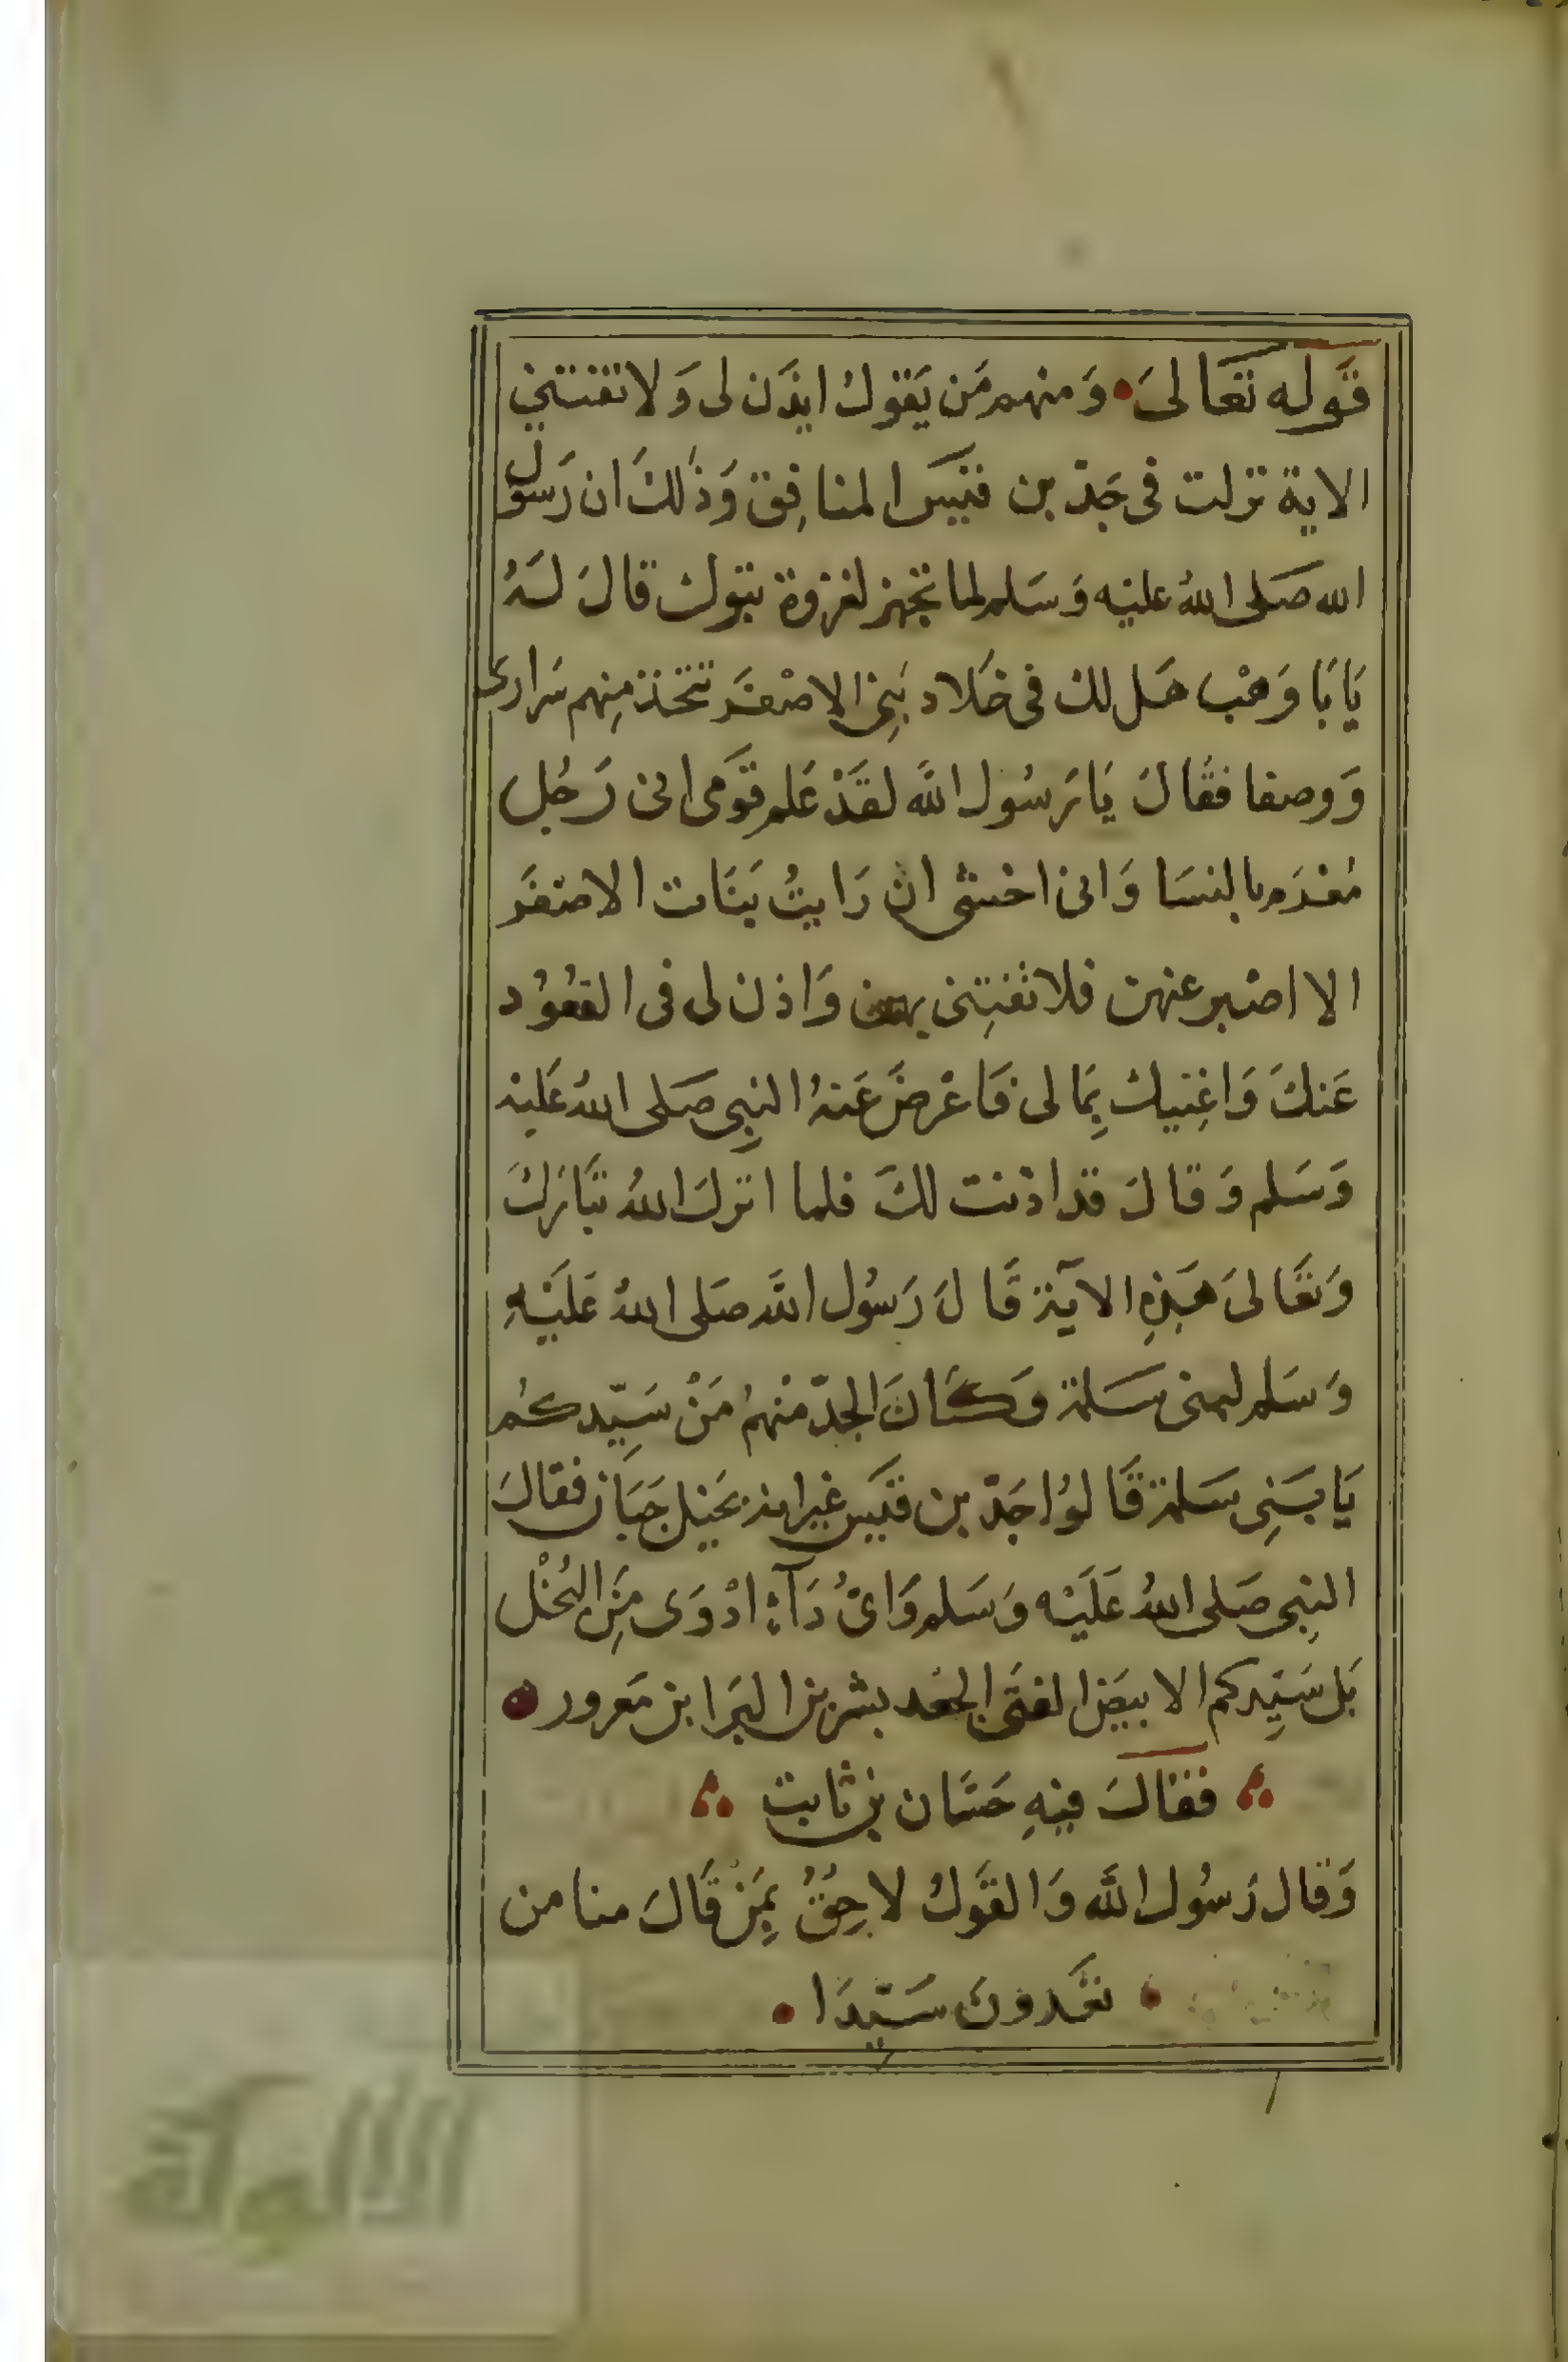 قَوله تعَالىَ • وَمنهم مَن يَقول ايذَن لى وَلا تفتني
الاية نزلت فى جَدّ بن قيس المنافِق وَذٰلكَ ان رَسول
الله صَلى اللهُ عليْه وَسَلم لما تجهز لغزوة تبوك قالَ لَهُ
يَابَا وَهْب هَل لك فى خلاد بَنِى الاصْفَر تتخذ مِنهم سَرارى
وَوصفا فقالَ يَا رَسُول اللَّه لقَدْ عَلم قَومى انى رَجُل
مُغرَم بالنسَا وَانى اخشى ان رَايتُ بَنَات الاصْفَر
الا اصْبر عنهن فلا تفتِنى بهن وَاذن لى فى القُعُود
عَنكَ وَاعِنيك بِمَالى فَاعْرضَ عَنهُ النبِى صَلى اللهُ عَليْه
وَسَلم وَقالَ قد اذنت لكَ فلما انزلَ اللهُ تبَارَكَ
وَتعَالىَ هَذِهِ الآيَة قَالَ رَسُول اللَّه صَلى اللهُ عَلَيْهِ
وَسَلم لبنى سَلمة وَكَانَ الجدّ منْهمُ مَنْ سَيِّدكُم
يَا بَنِى سَلمة قَالوُا جَدّ بن قيَس غير انه بخيل جَبَان فقالَ
النبِى صَلى اللهُ عَلَيْه وَسَلم وَاىُّ دَآءٍ ادْوَى مِنَ البُخْل
بَل سَيِّدكم الابيَض الفتَى الجعْد بشر بن البَرا ابن مَعرور •
فقالَ فيْهِ حَسَّان بن ثابت
وَقال رَسُول اللَّه وَالقَولُ لاحِقُ بِمَنْ قَالَ منا من
• تعَدونَ سَيّدَا •
الألوكة